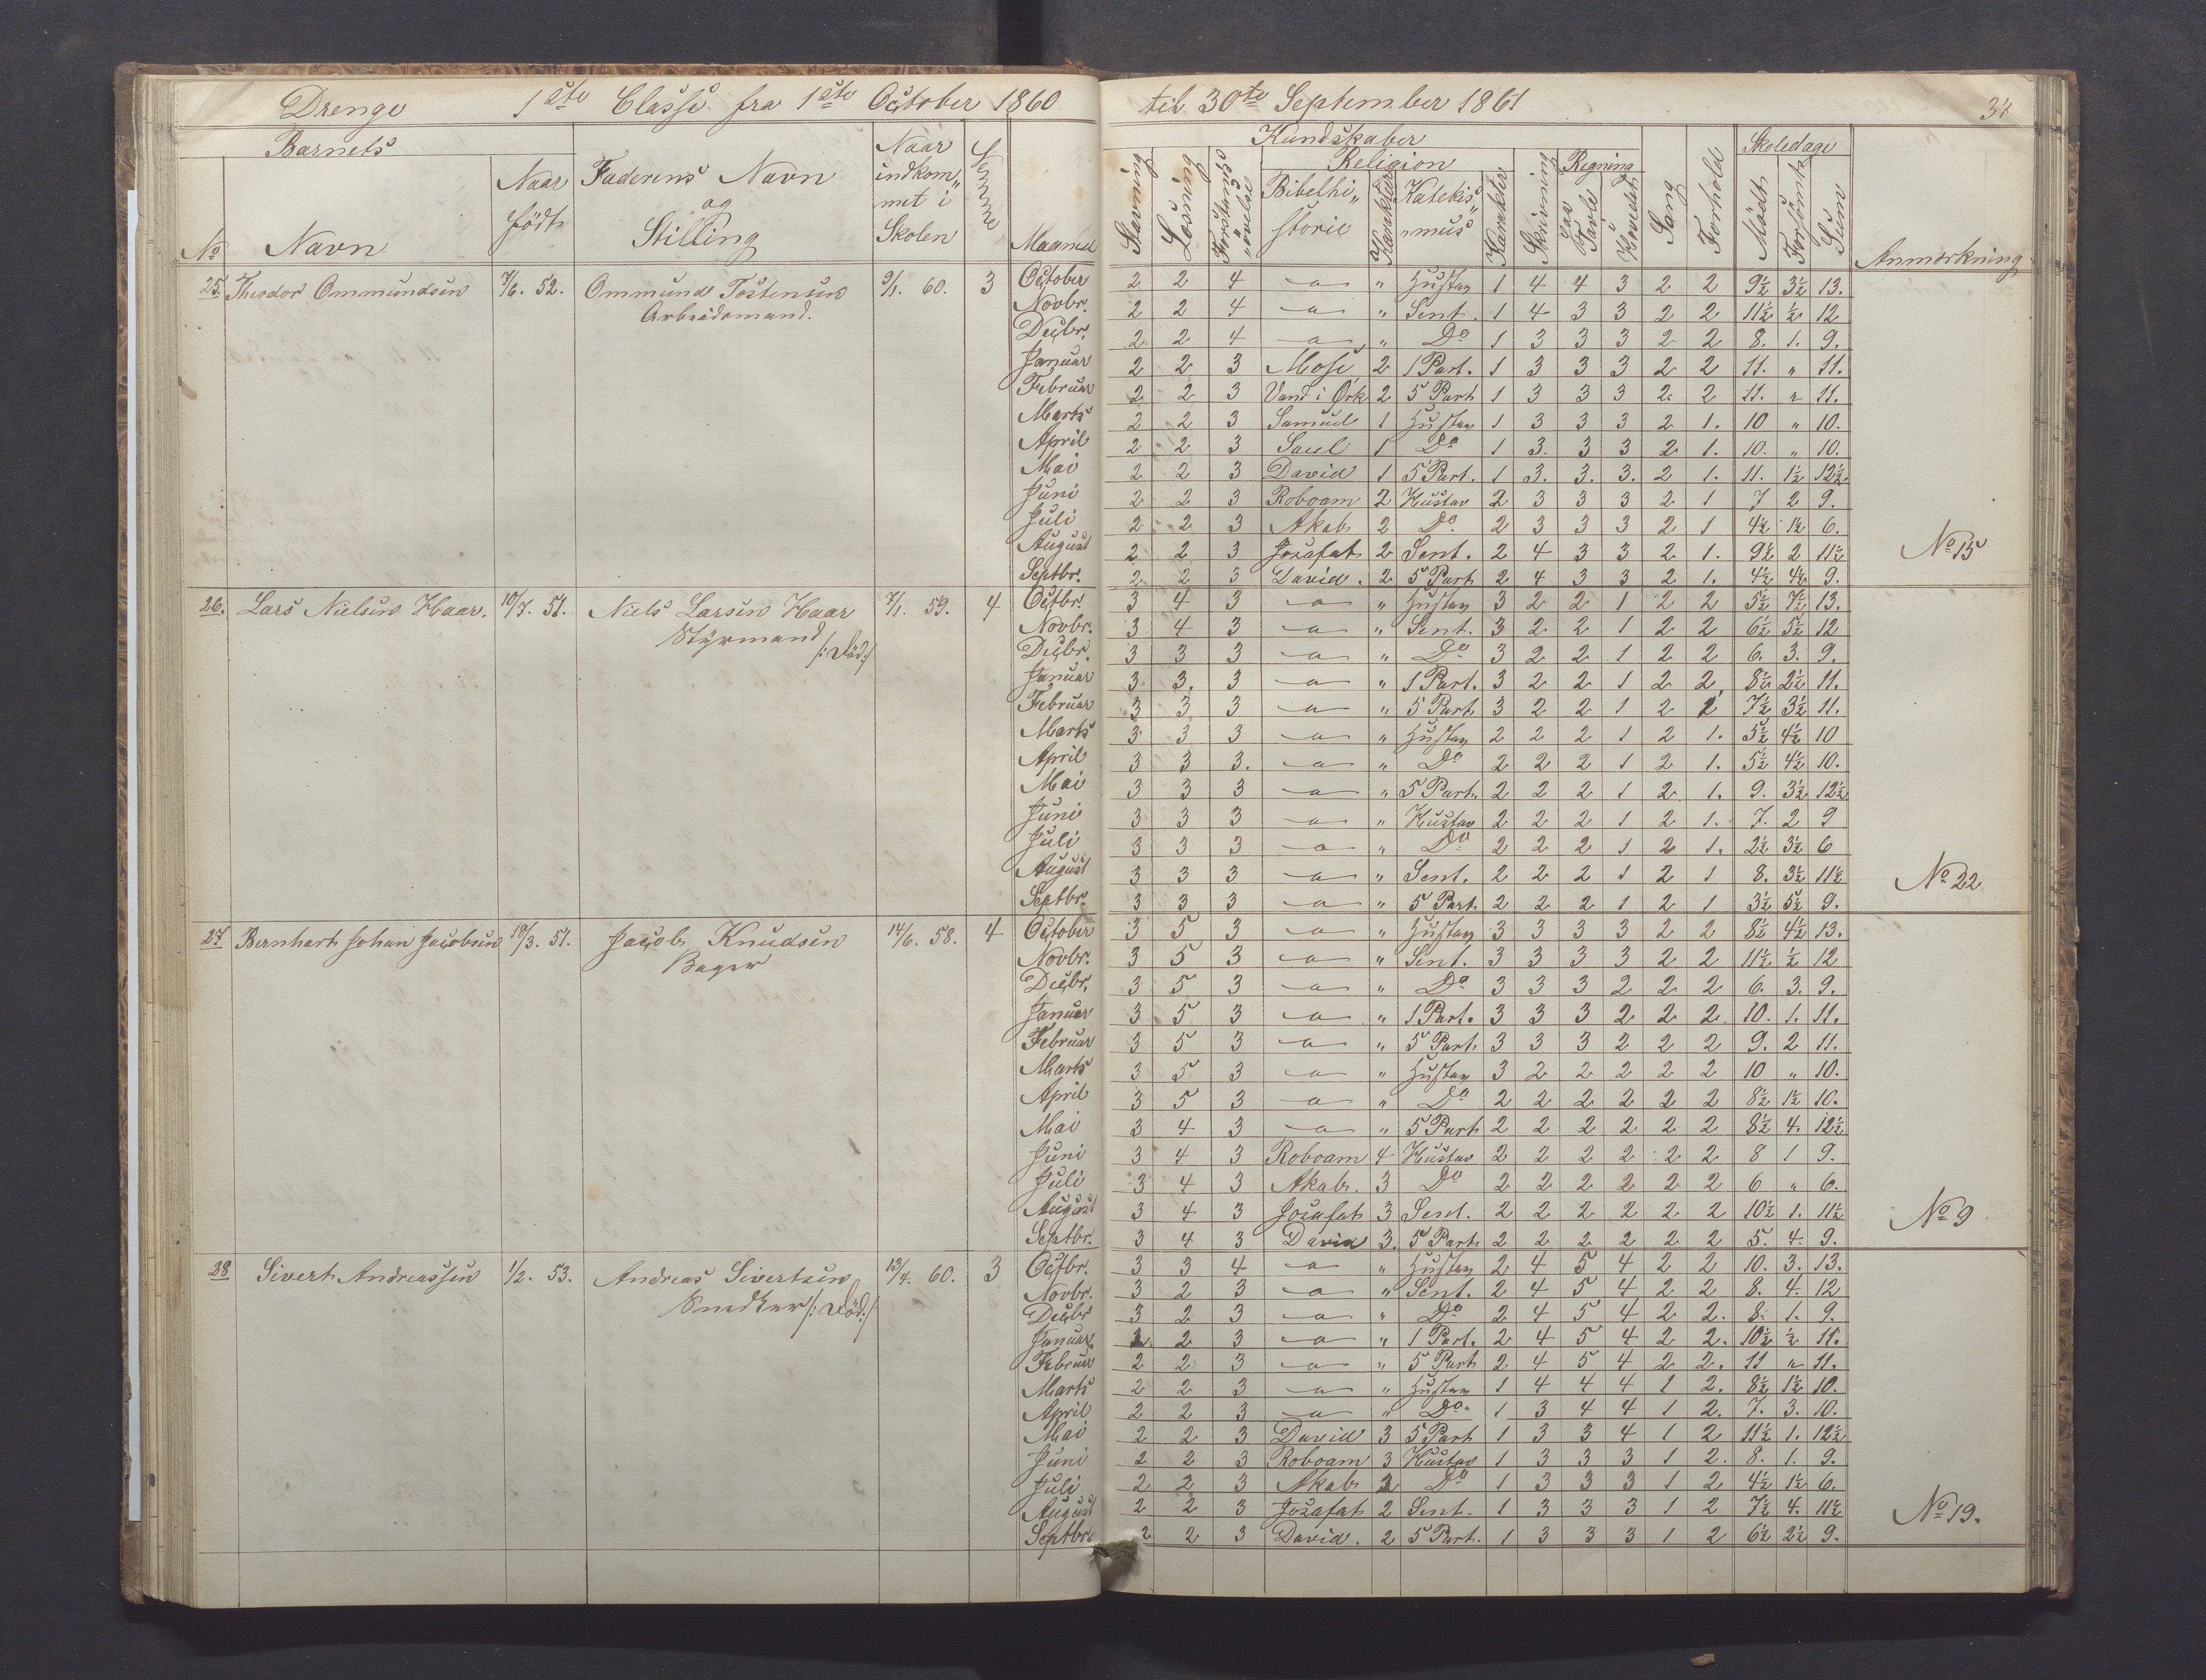 Drenge 1ste Classe fra 1ste October 1860 til 30te September 1861
34
Barnets Naar Kundskaber Skoledage
Naar Faderens Navn indkom„ Religion Regning
født og met i Bibelhi„ Katekis„
No Navn Stilling Skolen Maaned Stavning Læsning Forstands„øvelse storie Karakter „mus Karakter Skrivning paa Tavle i Hovedet Sang Forhold Mödt Forsömt Sum Anmærkning
25. Theodor Ommundsen 7/6. 52. Ommund Tostensen 9/1. 60. 3 October 2 2 4 — " 1 4 4 3 2 2 9½ 3½ 13.
Arbeidsmand. Novbr. 2 2 4 — " Sent. 1 4 3 3 2 2 11½ ½ 12
Decbr. 2 2 4 — " Do 1 3 3 3 2 2 8. 1. 9.
Januar 2 2 3 Mose 2 1 Part. 1 3 3 3 2 2 11. " 11.
Februar 2 2 3 Vand i Ørk 2 5 Part 1 3 3 3 2 2 11. " 11.
Marts 2 2 3 Samuel 1 1 3 3 3 2 1. 10 " 10.
April 2 2 3 Saul 1 Do 1 3. 3 3 2 1. 10. " 10.
Mai 2 2 3 David 1 5 Part. 1 3. 3. 3. 2 1. 11. 1½ 12½.
Juni 2 2 3 Roboam 2 Hustav 2 3 3 3 2 1 7 2 9.
Juli 2 2 3 Akab 2 Do 2 3 3 3 2 1 4½ 1½ 6.
August 2 2 3 Josafat 2 Sent. 2 4 3 3 2 1. 9½ 2 11½ No 15
Septbr. 2 2 3 David. 2 5 Part 2 4 3 3 2 1. 4½ 4½ 9.
26. Lars Nielsen Haar. 10/7. 51. Niels Larsen Haar 7/1. 59. 4 Octbr. 3 4 3 — " 3 2 2 1 2 2 5½ 7½ 13.
Styrmand /:död:/ Novbr. 3 4 3 — " Sent. 3 2 2 1 2 2 6½ 5½ 12
Decbr. 3 3 3 — " Do 3 2 2 1 2 2 6. 3. 9.
Januar 3 3. 3 — " 1 Part. 3 2 2 1 2 2 8½ 2½ 11.
Februar 3 3 3 — " 5 Part 3 2 2 1 2 2 7½ 3½ 11.
Marts 3 3 3 — " 2 2 2 1 2 1. 5½ 4½ 10
April 3 3 3. — " Do 2 2 2 1 2 1. 5½ 4½ 10.
Mai 3 3 3 — " 5 Part. 2 2 2 1 2 1. 9. 3½ 12½
Juni 3 3 3 — " Hustav 2 2 2 1 2 1. 7. 2 9
Juli 3 3 3 — " Do 2 2 2 1 2 1. 2½ 3½ 6
August 3 3 3 — " Sent. 2 2 2 1 2 1 8. 3½ 11½ No 22
Septbr. 3 3 3 — " 5 Part 2 2 2 1 2 1 3½ 5½ 9.
27 Bernhart Johan Jacobsen 19/3. 51. Jacob Knudsen 14/6. 58. 4 October 3 5 3 — " 3 3 3 3 2 2 8½ 4½ 13.
Bager Novbr. 3 5 3 — " Sent. 3 3 3 3 2 2 11½ ½ 12
Decbr. 3 5 3 — " Do 3 3 3 2 2 2 6. 3. 9.
Januar 3 5 3 — " 1 Part. 3 3 3 2 2 2 10. 1. 11.
Februar 3 5 3 — " 5 Part. 3 3 3 2 2 2 9. 2 11.
Marts 3 5 3 — " 3 2 2 2 2 2 10 " 10.
April 3 5 3 — " Do 2 2 2 2 2 2 8½ 1½ 10.
Mai 3 4 3 — " 5 Part 2 2 2 2 2 2 8½ 4. 12½
Juni 3 4 3 Roboam 4 Hustav 2 2 2 2 2 2 8 1 9.
Juli 3 4 3 Akab. 3 Do 2 2 2 2 2 2 6 " 6.
August 3 4 3 Josafat 3 Sent. 2 2 2 2 2 2 10½ 1. 11½ No 9
Septbr. 3 4 3 David 3. 5 Part. 2 2 2 2 2 2 5. 4. 9.
28 Sivert Andreassen 1/2. 53. Andreas Sivertsen 13/4. 60. 3 Octbr. 3 3 4 — " 2 4 5 4 2 2 10. 3. 13.
Snedker /:död:/ Novbr. 3 2 3 — " Sent. 2 4 5 4 2 2 8. 4. 12
Decbr 3 2 3 — " Do 2 4 5 4 2 2. 8. 1. 9.
Januar 2 2 3 — " 1 Part. 2 4 5 4 2 2. 10½ ½ 11.
Februar 2 2 3 — " 5 Part 2 4 5 4 2 2. 11 " 11.
Marts 2 2 3 — " 1 4 4 4 1 2. 8½ 1½ 10.
April 2 2 3 — " Do. 1 3 4 4 1 2. 7. 3. 10.
Mai 2 2 3 David 3 5 Part 1 3 3 4 1 2 11½ 1. 12½
Juni 2 2 3 Roboam 3 Hustav 1 3 3 3 1 2. 8. 1. 9.
Juli 2 2 3 Akab 2 Do 1 3 3 3 1 2 4½ 1½ 6.
August 2 2 3 Josafat 2 Sent. 1 3 3 3 1 2 7½ 4. 11½ No 19.
Septbr. 2 2 3 David. 2 5 Part. 1 3 3 3 1 2 6½ 2½ 9.